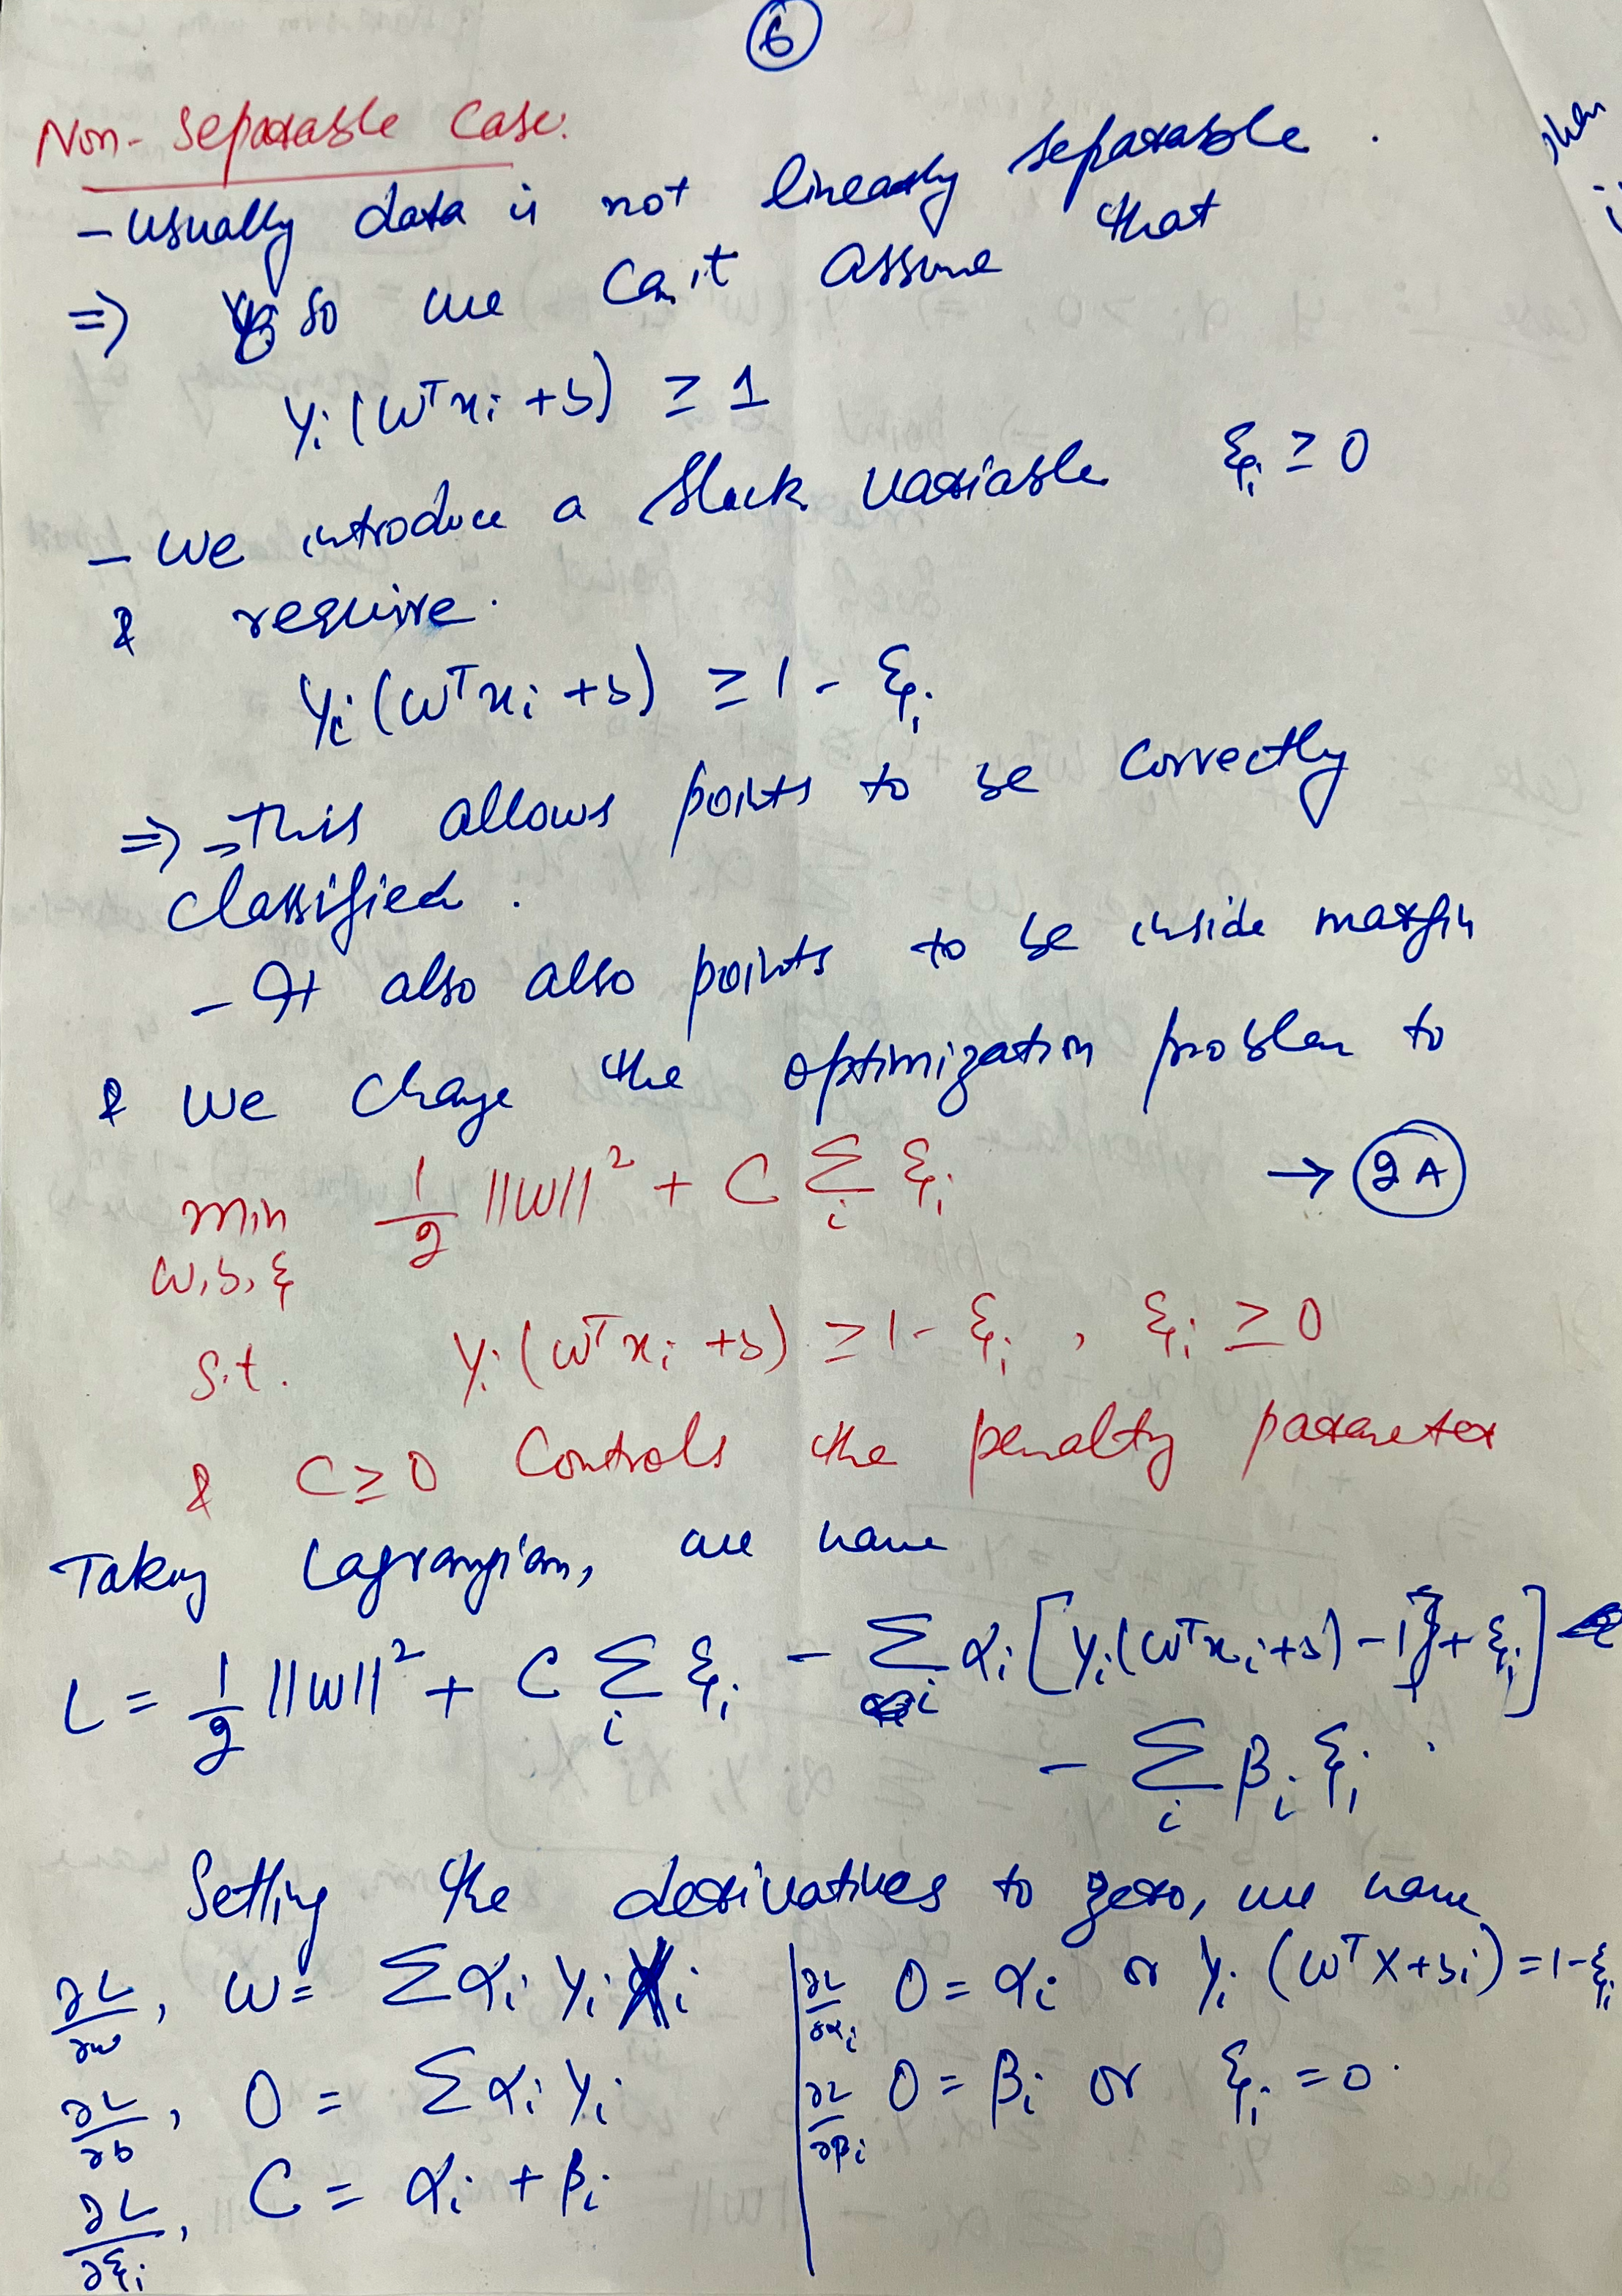 6
Non-Separable Case.
- Usually data is not linearly separable.
=> so we can't assume that
yi(wᵀxi + b) ≥ 1
- We introduce a slack variable ξi ≥ 0
& require.
yi(wᵀxi + b) ≥ 1 - ξi
=> - This allows points to be correctly
classified.
- It also also points to be inside margin
& we change the optimization problem to
min 1/2 ||w||² + C Σi ξi → 2A
w, b, ξ
s.t. yi(wᵀxi + b) ≥ 1 - ξi , ξi ≥ 0
& C ≥ 0 controls the penalty parameter
Taking Lagrangian, we have
L = 1/2 ||w||² + C Σi ξi - Σi αi [yi(wᵀxi + b) - 1 + ξi]
- Σi βi ξi .
Setting the derivatives to zero, we have
∂L/∂w, w = Σ αi yi xi | ∂L/∂αi 0 = αi or yi (wᵀX + bi) = 1 - ξi
∂L/∂b, 0 = Σ αi yi | ∂L/∂βi 0 = βi or ξi = 0.
∂L/∂ξi, C = αi + βi